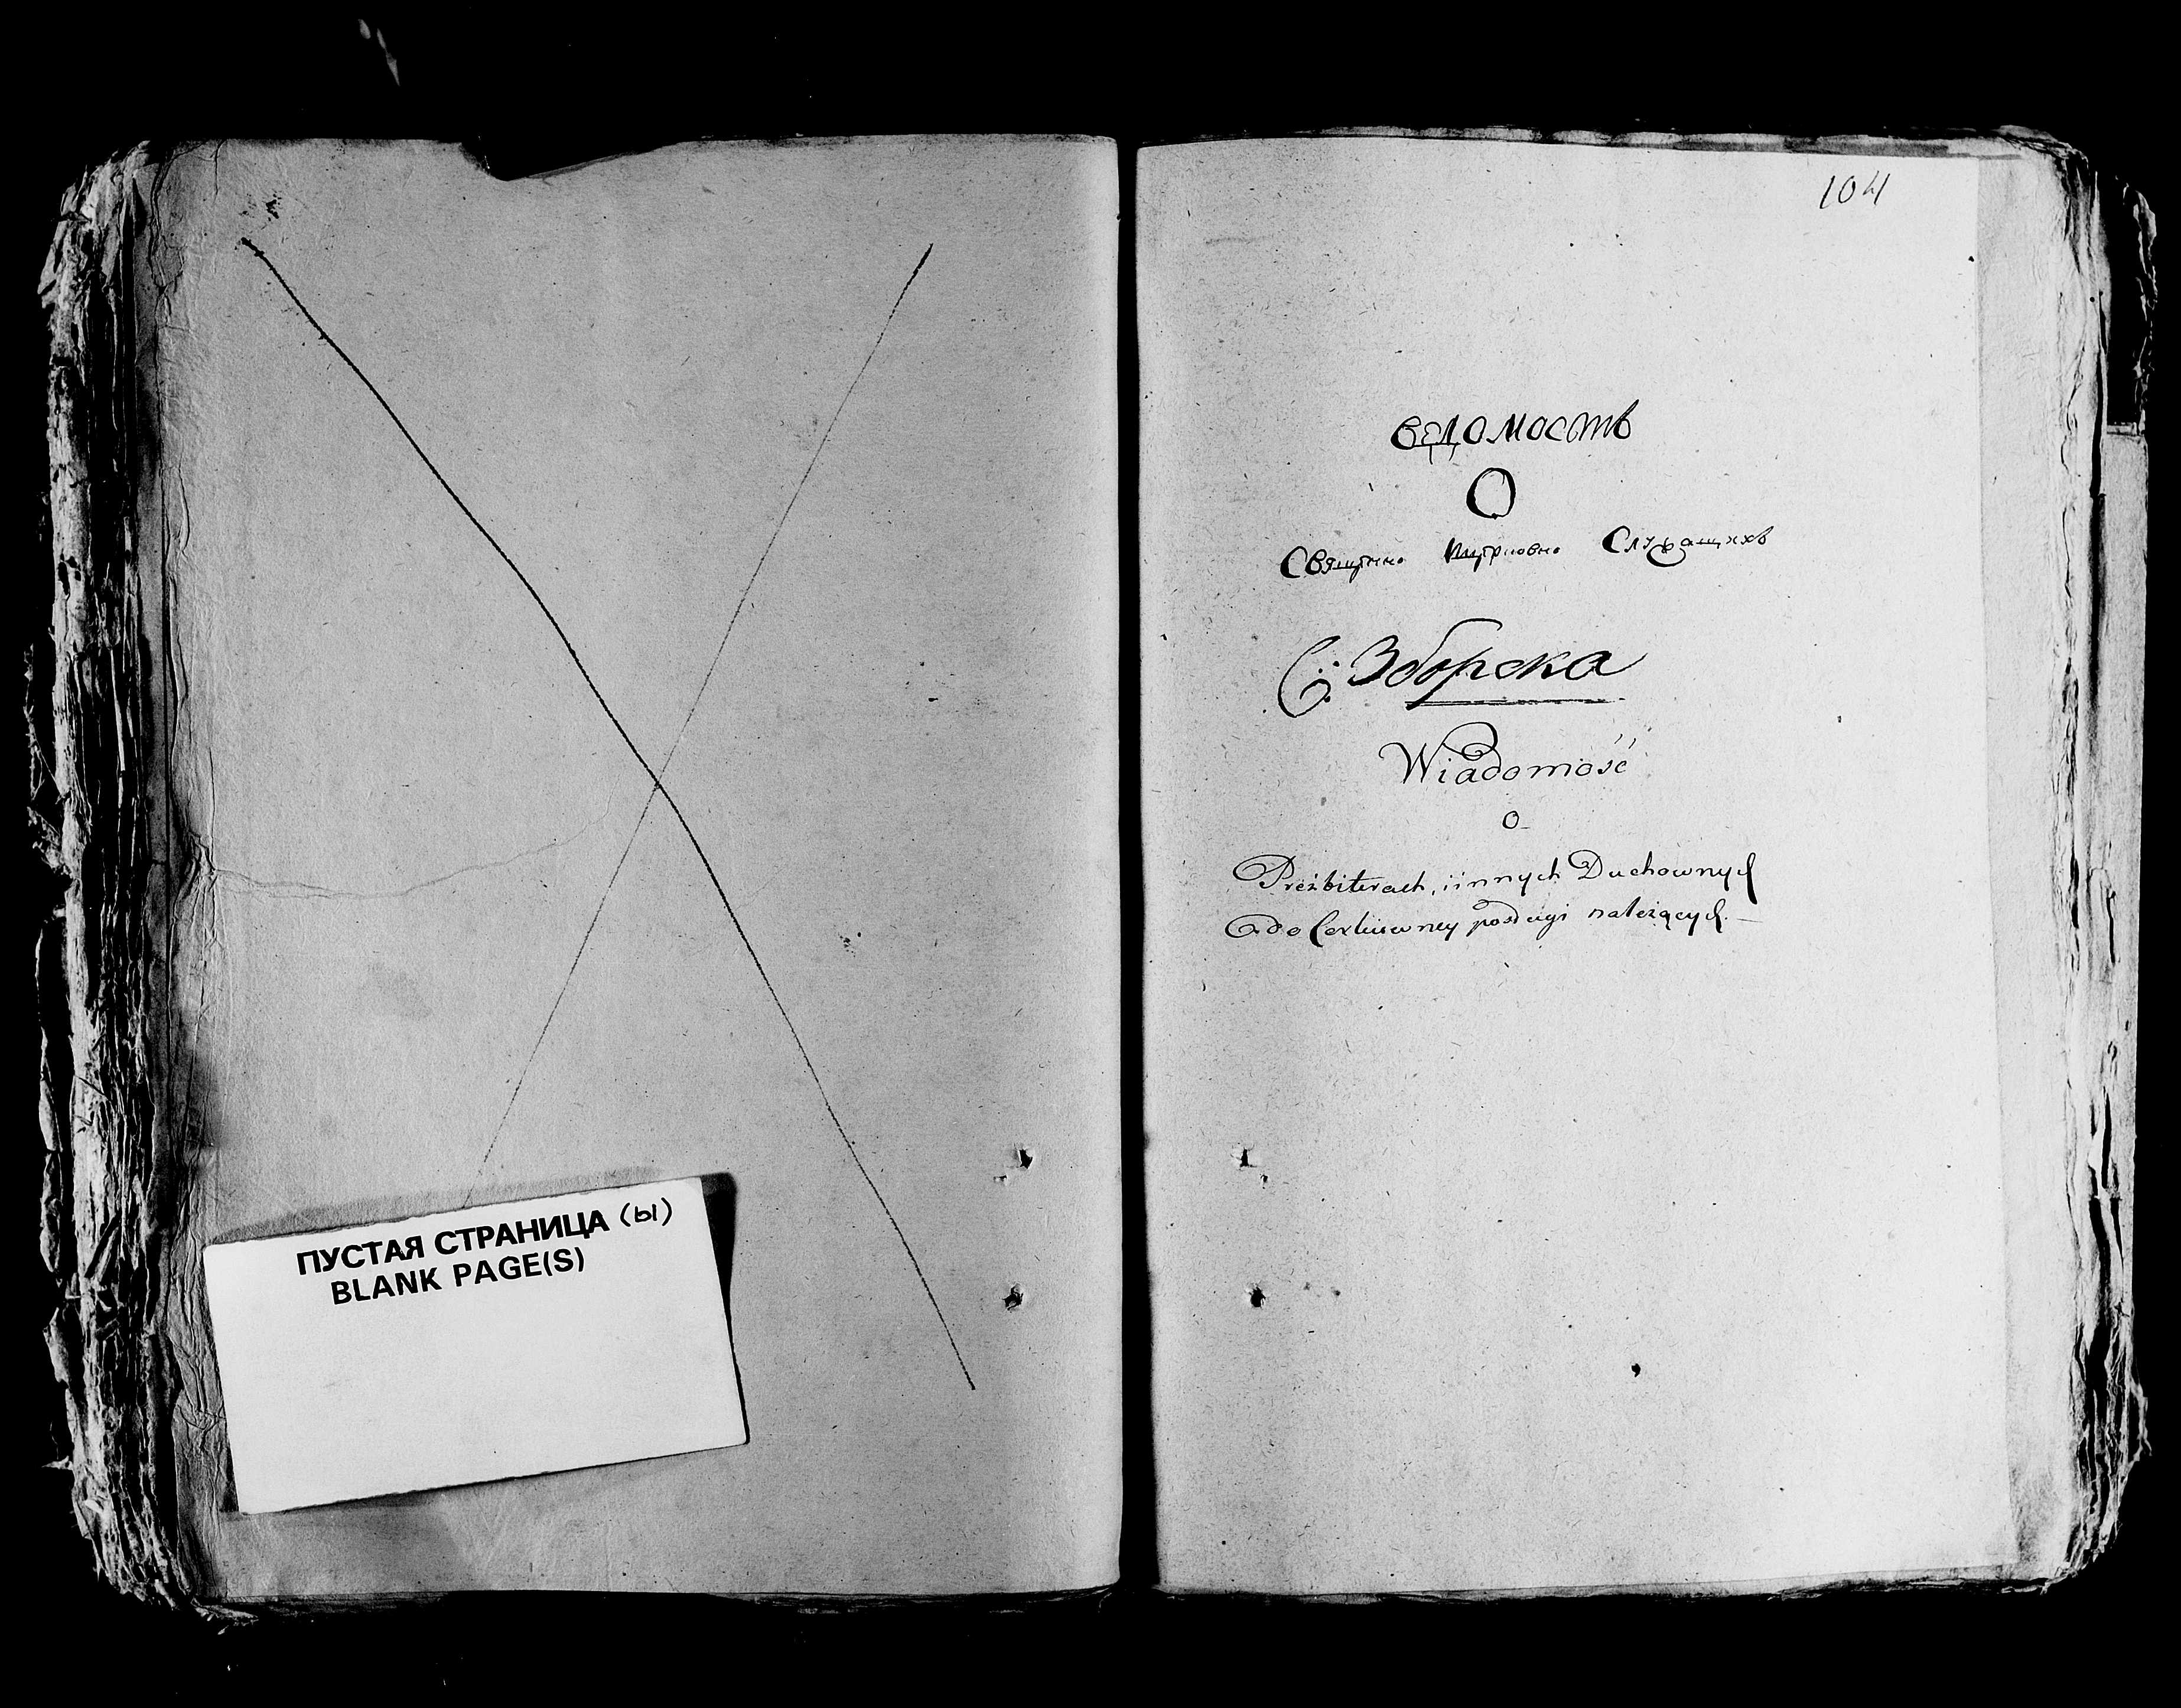 ПУСТАЯ СТРАНИЦА (ы)
BLANK PAGE(S)
104
ведомость
О
Священно Служащихъ
С: Зборска
Wiadomość
o
Prezbiterach, i innych Duchownych
do Cerkiewney posługi należących.